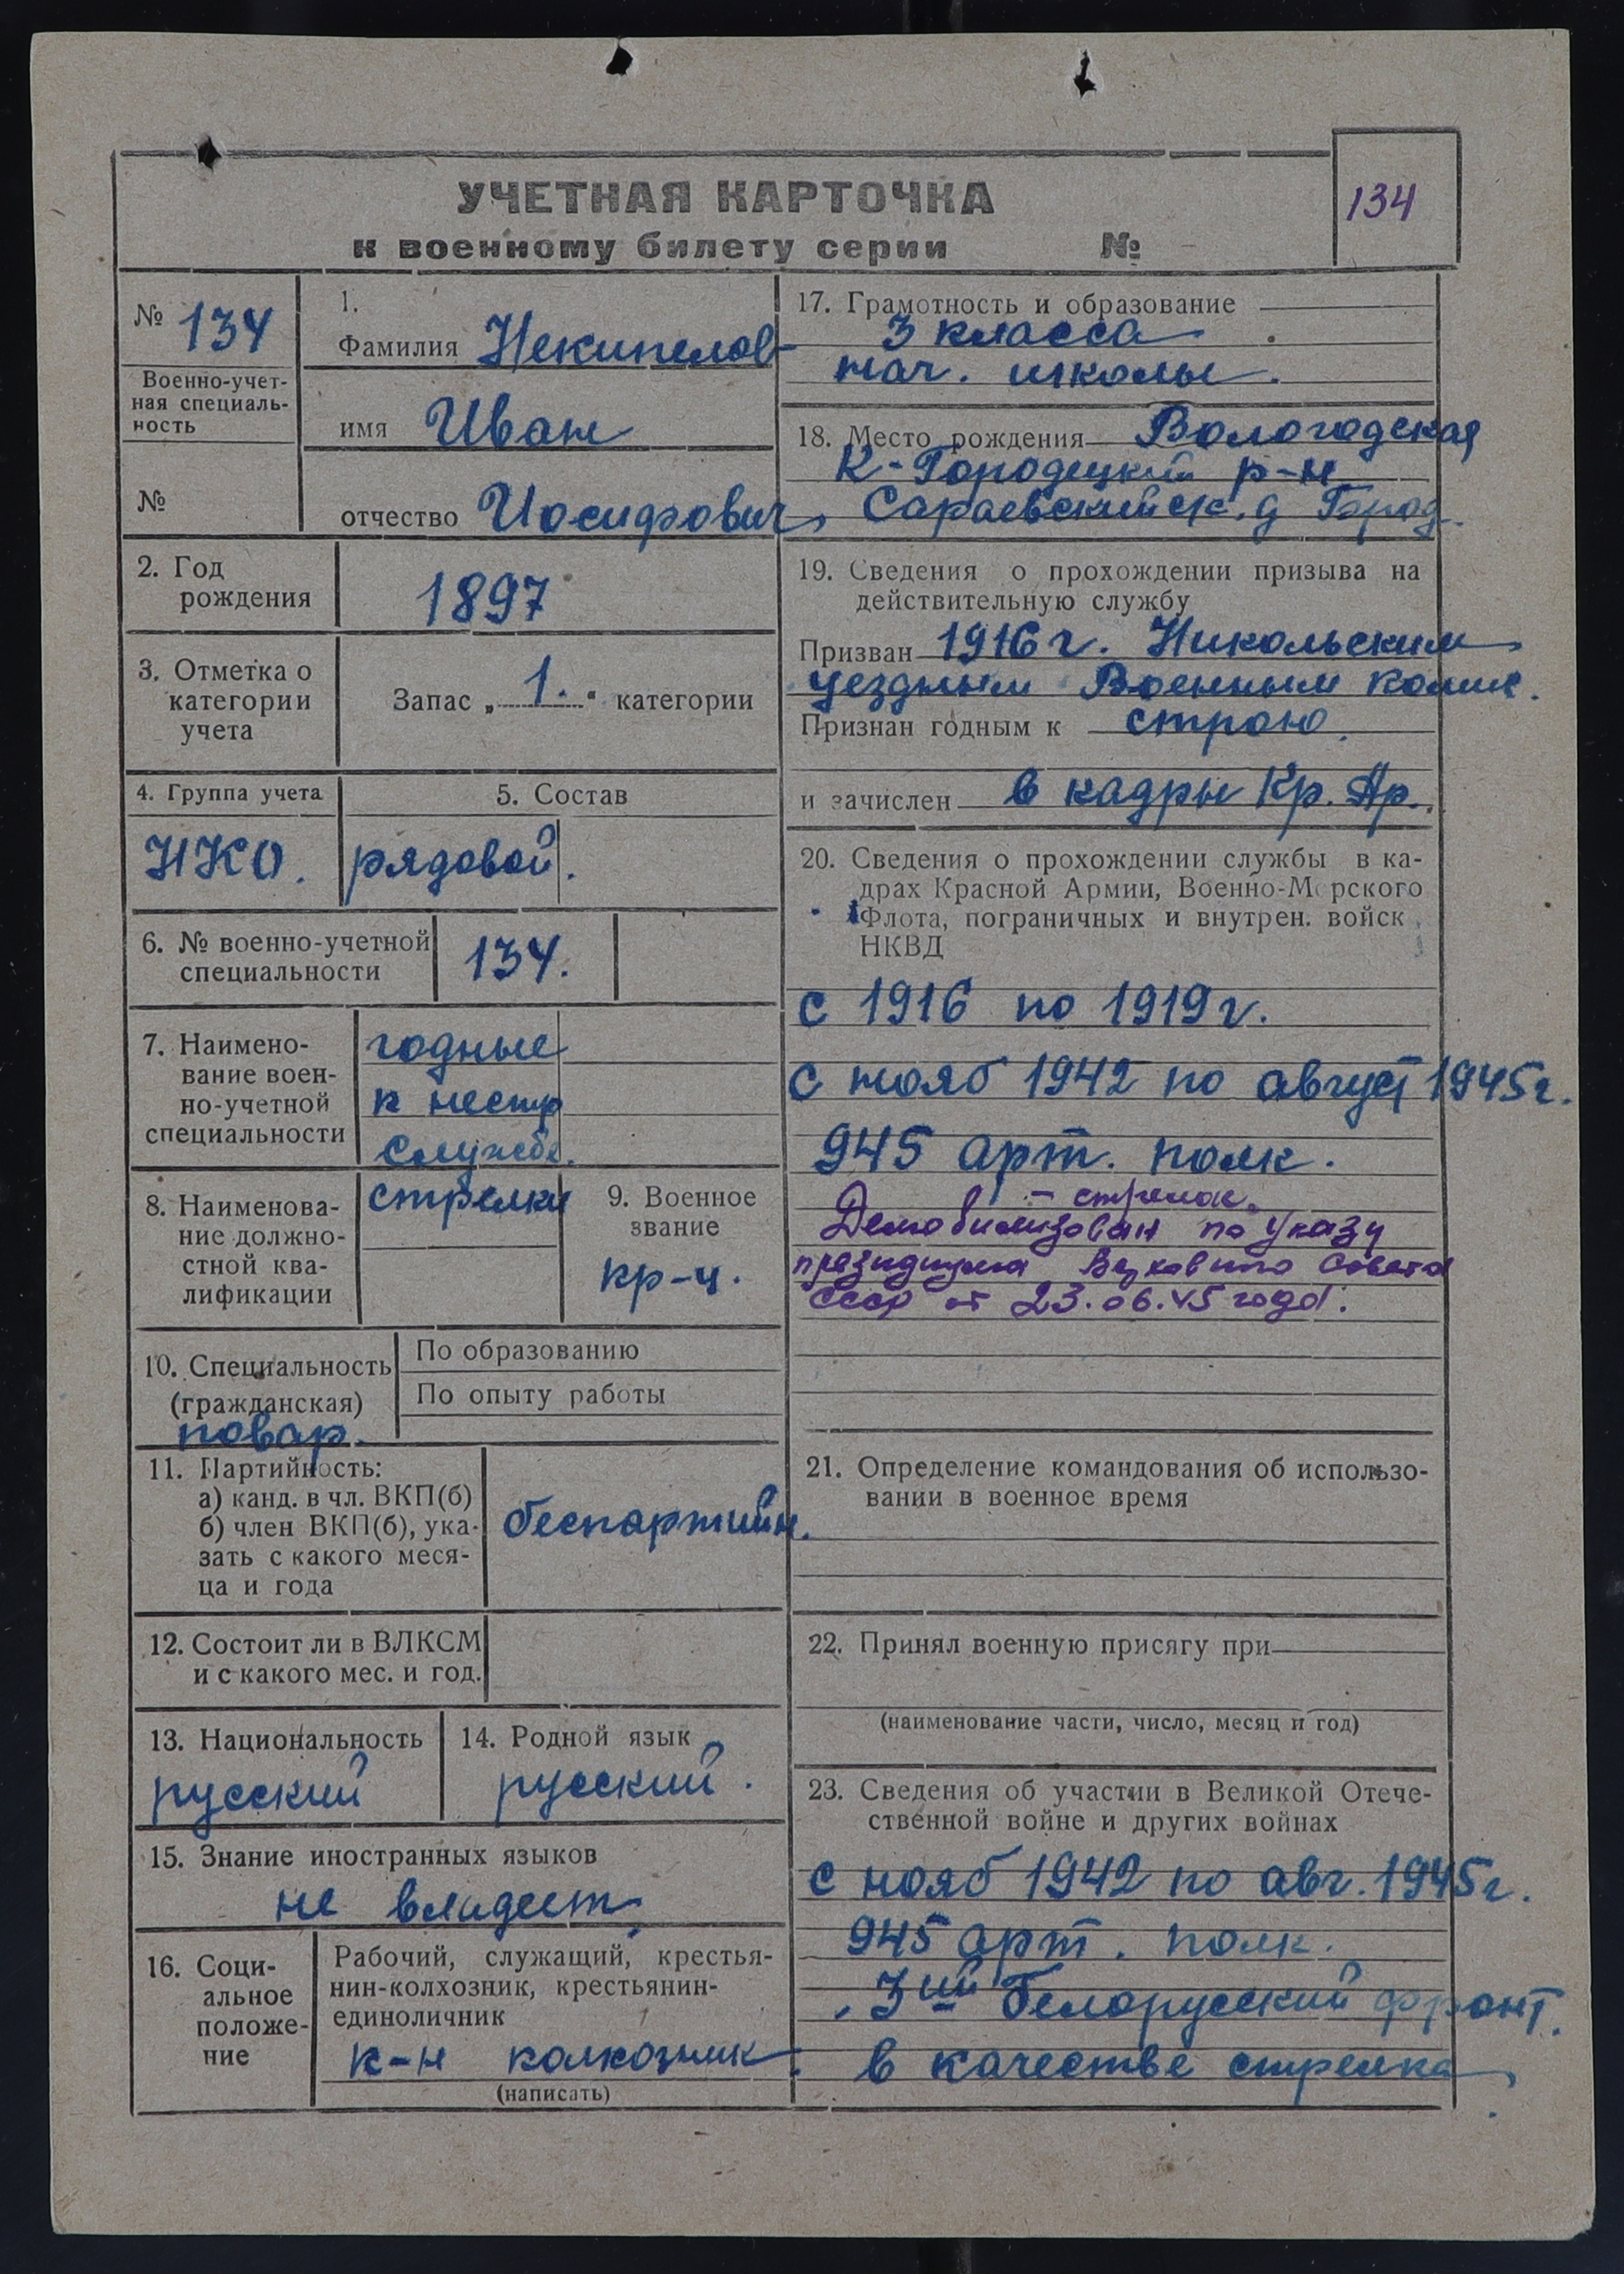 УЧЕТНАЯ КАРТОЧКА
к военному билету серии №
134
№ 134
Военно-учет-
ная специаль-
ность
№
1.
Фамилия Некипелов
имя Иван
отчество Иосифович
2. Год
рождения
1897
3. Отметка о
категории
учета
Запас „ 1. " категории
4. Группа учета
НКО.
5. Состав
рядовой.
6. № военно-учетной
специальности
134.
7. Наимено-
вание воен-
но-учетной
специальности
годные
к нестр
службе.
8. Наименова-
ние должно-
стной ква-
лификации
стрелки
9. Военное
звание
кр-ц.
10. Специальность
(гражданская)
повар.
По образованию
По опыту работы
11. Партийность:
а) канд. в чл. ВКП(б)
б) член ВКП(б), ука-
зать с какого меся-
ца и года
беспартийн.
12. Состоит ли в ВЛКСМ
и с какого мес. и год.
13. Национальность
русский
14. Родной язык
русский.
15. Знание иностранных языков
не владеет
16. Соци-
альное
положе-
ние
Рабочий, служащий, крестья-
нин-колхозник, крестьянин-
единоличник
к-н колхозник
(написать)
17. Грамотность и образование
3 класса
нач. школы.
18. Место рождения Вологодская
К-Городецкий р-н
Сараевский с/с. д Город.
19. Сведения о прохождении призыва на
действительную службу
Призван 1916 г. Никольским
уездным Военным комис.
Признан годным к строю.
и зачислен в кадры Кр. Ар.
20. Сведения о прохождении службы в ка-
драх Красной Армии, Военно-Морского
Флота, пограничных и внутрен. войск
НКВД
с 1916 по 1919 г.
с нояб 1942 по август 1945 г.
945 арт. полк.
- стрелок.
Демобилизован по Указу
президиума Верховного Совета
СССР от 23.06.45 года.
21. Определение командования об использо-
вании в военное время
22. Принял военную присягу при
(наименование части, число, месяц и год)
23. Сведения об участии в Великой Отече-
ственной войне и других войнах
с нояб 1942 по авг. 1945 г.
945 арт. полк.
3ий Белорусский фронт.
в качестве стрелка